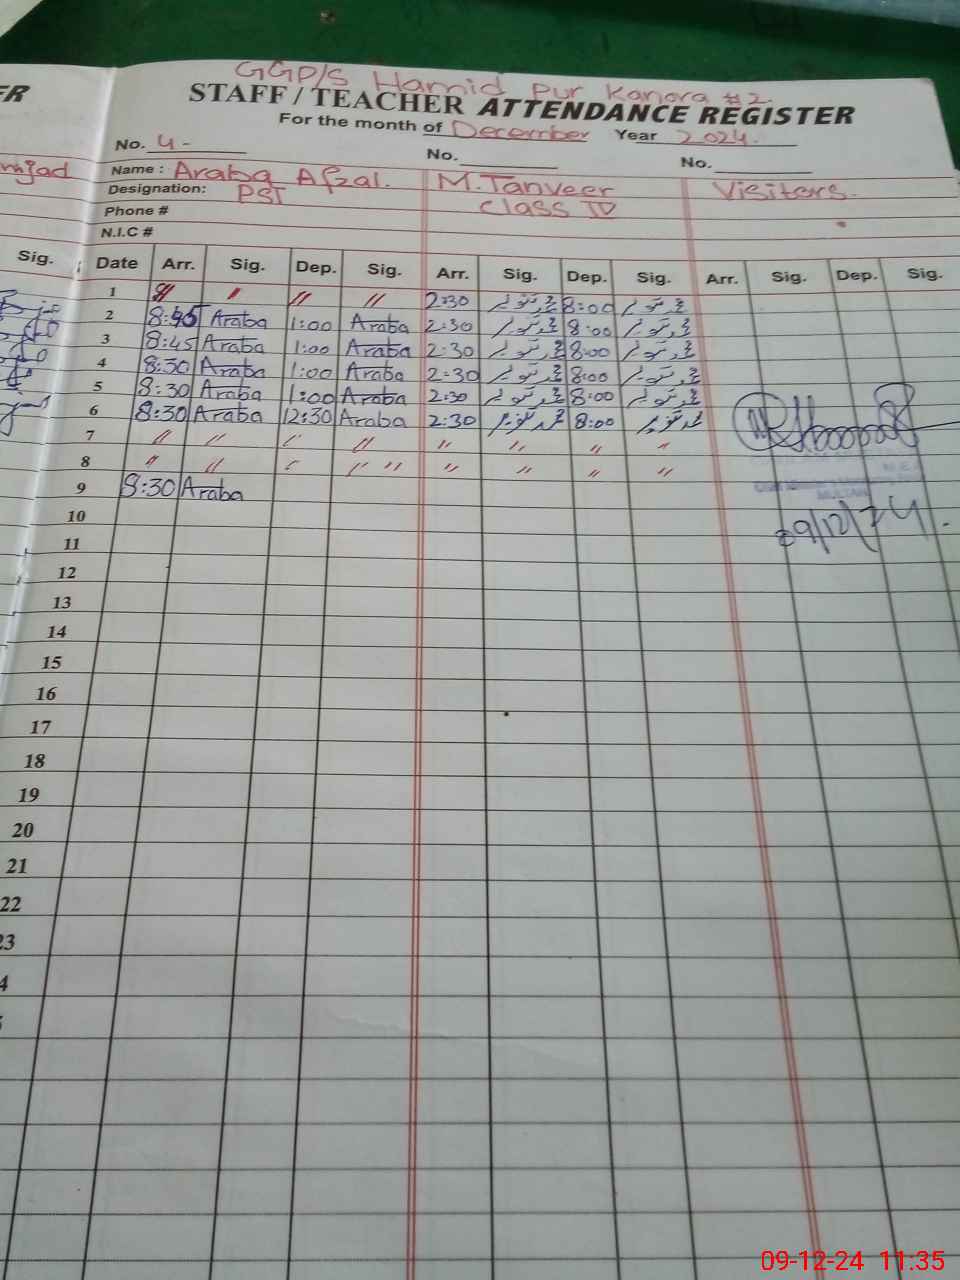 GGP/S Hamid Pur Kanora #2
ER STAFF / TEACHER ATTENDANCE REGISTER
For the month of December Year 2024.
No. 4 - No. No.
mjad Name : Araba Afzal. M. Tanveer Visitors.
Designation: PST Class IV
Phone #
N.I.C #
Sig. Date Arr. Sig. Dep. Sig. Arr. Sig. Dep. Sig. Arr. Sig. Dep. Sig.
1 〃 〃 〃 〃 2:30 محمد تنویر 8:00 محمد تنویر
2 8:45 Araba 1:00 Araba 2:30 محمد تنویر 8:00 محمد تنویر
3 8:45 Araba 1:00 Araba 2:30 محمد تنویر 8:00 محمد تنویر
4 8:30 Araba 1:00 Araba 2:30 محمد تنویر 8:00 محمد تنویر
5 8:30 Araba 1:00 Araba 2:30 محمد تنویر 8:00 محمد تنویر
6 8:30 Araba 12:30 Araba 2:30 محمد تنویر 8:00 محمد تنویر
7 〃 〃 〃 〃 〃 〃 〃 〃
8 〃 〃 〃 〃 〃 〃 〃 〃 〃
9 8:30 Araba
M.E.A
MULTAN
09/12/24.
10
11
12
13
14
15
16
17
18
19
20
21
22
23
4
09-12-24 11:35